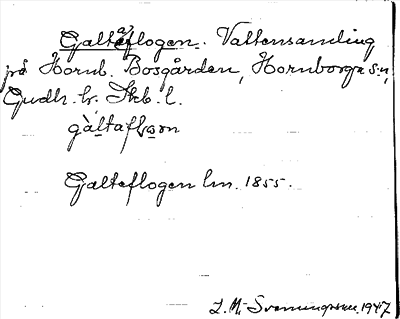 Galteflogen. Vattensamling
på Hornb. Bosgården, Hornborga s:n,
Gudh. hr. Skb. l.
gàltaflωɷn
Galteflogen lm. 1855.
L. M. Svenungsson 1947